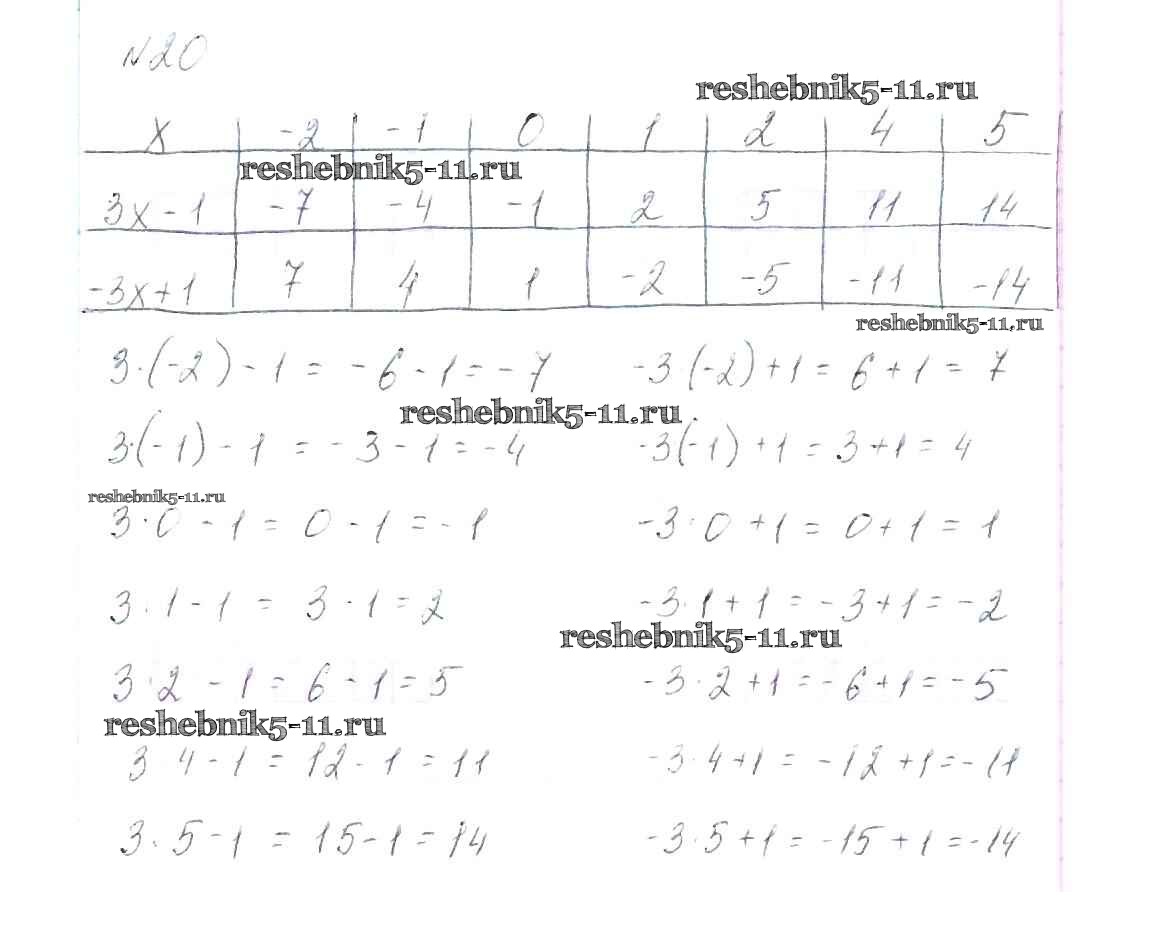 №20
reshebnik5-11.ru
x | -2 | -1 | 0 | 1 | 2 | 4 | 5
reshebnik5-11.ru
3x-1 | -7 | -4 | -1 | 2 | 5 | 11 | 14
-3x+1 | 7 | 4 | 1 | -2 | -5 | -11 | -14
reshebnik5-11.ru
3·(-2)-1 = -6-1=-7 -3·(-2)+1=6+1=7
reshebnik5-11.ru
3·(-1)-1 = -3-1=-4 -3(-1)+1=3+1=4
reshebnik5-11.ru
3·0-1=0-1=-1 -3·0+1=0+1=1
3·1-1=3-1=2 -3·1+1=-3+1=-2
reshebnik5-11.ru
3·2-1=6-1=5 -3·2+1=-6+1=-5
reshebnik5-11.ru
3 4-1=12-1=11 -3·4+1=-12+1=-11
3·5-1=15-1=14 -3·5+1=-15+1=-14